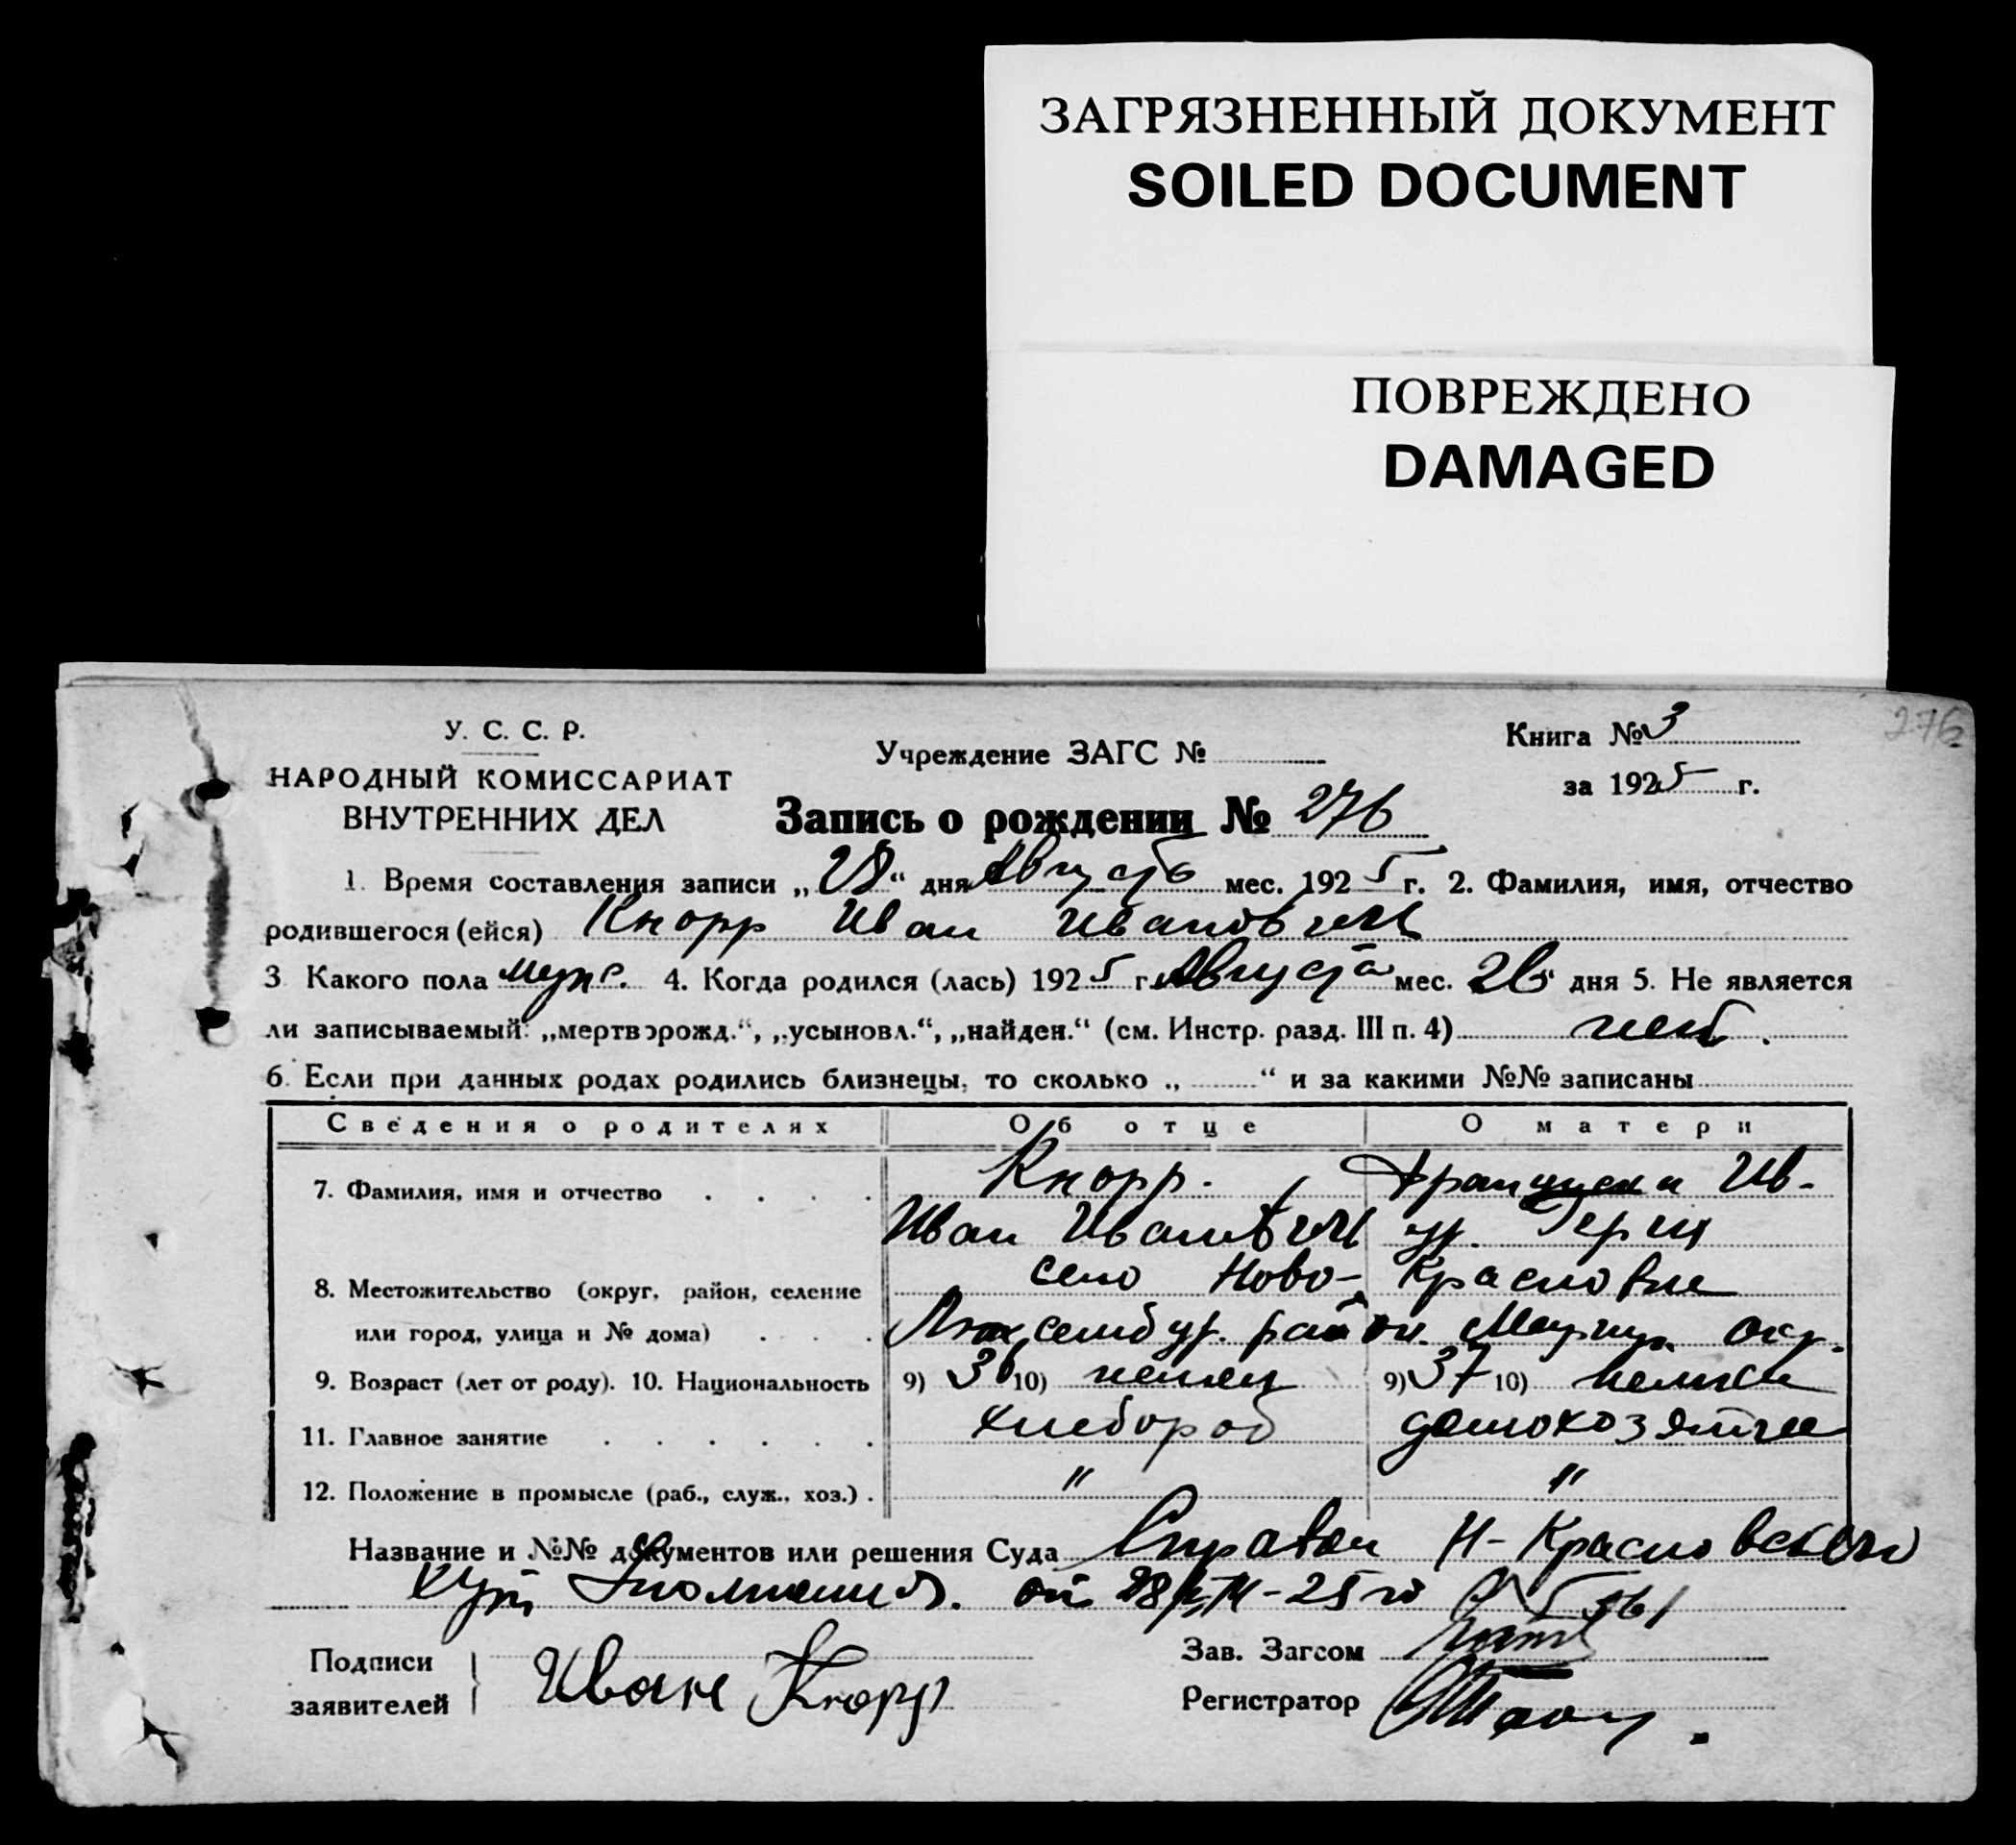 ЗАГРЯЗНЕННЫЙ ДОКУМЕНТ
SOILED DOCUMENT
ПОВРЕЖДЕНО
DAMAGED
276
У. С. С. Р.
НАРОДНЫЙ КОМИССАРИАТ
ВНУТРЕННИХ ДЕЛ
Учреждение ЗАГС №
Книга № 3
за 1925 г.
Запись о рождении № 276
1. Время составления записи „28“ дня Августа мес. 1925 г. 2. Фамилия, имя, отчество
родившегося (ейся) Кнорр Иван Иванович
3. Какого пола муж. 4. Когда родился (лась) 1925 г. Августа мес. 26 дня 5. Не является
ли записываемый: „мертворожд.“, „усыновл.“, „найден.“ (см. Инстр. разд. III п. 4) нет.
6. Если при данных родах родились близнецы, то сколько „ “ и за какими №№ записаны
Сведения о родителях Об отце О матери
7. Фамилия, имя и отчество Кнорр. Франциска Ив.
Иван Иванович ур.
8. Местожительство (округ, район, селение село Ново-Красновке
или город, улица и № дома) Люксембур. район. Мариуп. окр.
9. Возраст (лет от роду). 10. Национальность 9) 36 10) немец 9) 37 10) немка
11. Главное занятие хлебороб домохозяйка
12. Положение в промысле (раб., служ., хоз.) " "
Название и №№ документов или решения Суда Справки Н-Красновского
от 28/VIII-25 го
Подписи
заявителей Иван Кнорр
Зав. Загсом
Регистратор